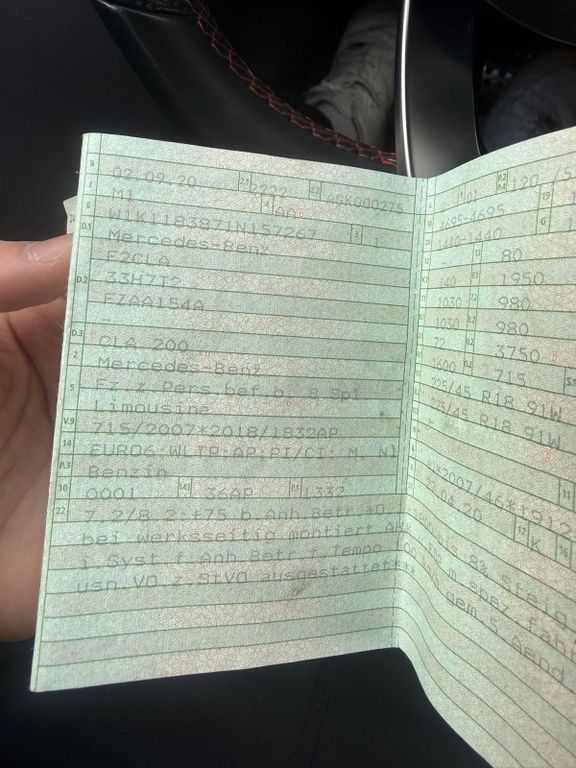 B 02.09.20 2.1 2222 2.2 AGK000275
J M1 4 AA
E W1K1183871N157267 3 1
D.1 Mercedes-Benz
F2CLA
D.2 33H7T2
FZAA154A
-
D.3 CLA 200
2 Mercedes-Benz
5 Fz.z.Pers.bef.b. 8 Spl.
Limousine
V.9 715/2007*2018/1832AP
14 EURO6;WLTP;AP;PI/CI; M, N1
P.3 Benzin
10 0001 14.1 36AP P.1 1332
22 7.2/8.2:+75 b.Anh.Betr.*0
bei werksseitig montiert AH
i.Syst.f.Anh.Betr.f.Tempo
usn.VO z.StVO ausgestattet***
P.2 P.4 120 /5
18 4695-4695 19
20 1440-1440 G
80
140 1950
1030 980
1030 980
72 3750
1600 715 S.1
225/45 R18 91W
225/45 R18 91W
11
e1*2007/46*1912
.04.20 17 K 16
8% Steig
m.spez.fahr
gem.5.Aend